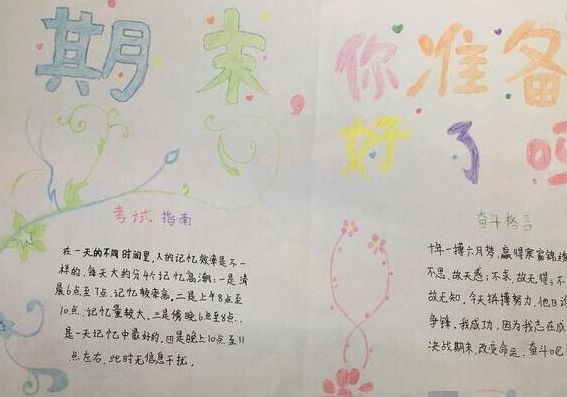 期末,你准备
好了吗
考试指南
在一天的不同时间里,人的记忆效率是不一
样的,每天大约分4个记忆高潮:一是清
晨6点至7点,记忆较率高,二是上午8点至
10点,记忆量较大,三是傍晚6点至8点,
是一天记忆中最好的,四是晚上10点至11
点左右,此时无信息干扰。
奋斗格言
十年一搏六月梦,赢得寒窗锦绣
不思,故无惑;不求,故无得;不
故无知。今天拼搏努力,他日谁
争锋,我成功,因为我志在成
决战期末,改变命运,奋斗吧